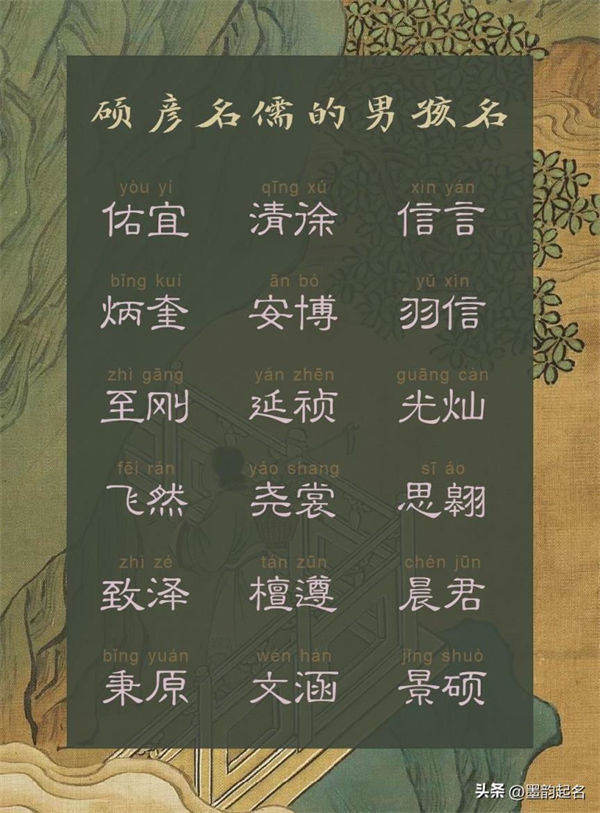 硕彦名儒的男孩名
yòu yí qīng xú xìn yán
佑宜 清徐 信言
bǐng kuí ān bó yǔ xìn
炳奎 安博 羽信
zhì gāng yán zhēn guāng càn
至刚 延祯 光灿
fēi rán yáo shang sī áo
飞然 尧裳 思翱
zhì zé tán zūn chén jūn
致泽 檀遵 晨君
bǐng yuán wén hán jǐng shuò
秉原 文涵 景硕
头条 @墨韵起名